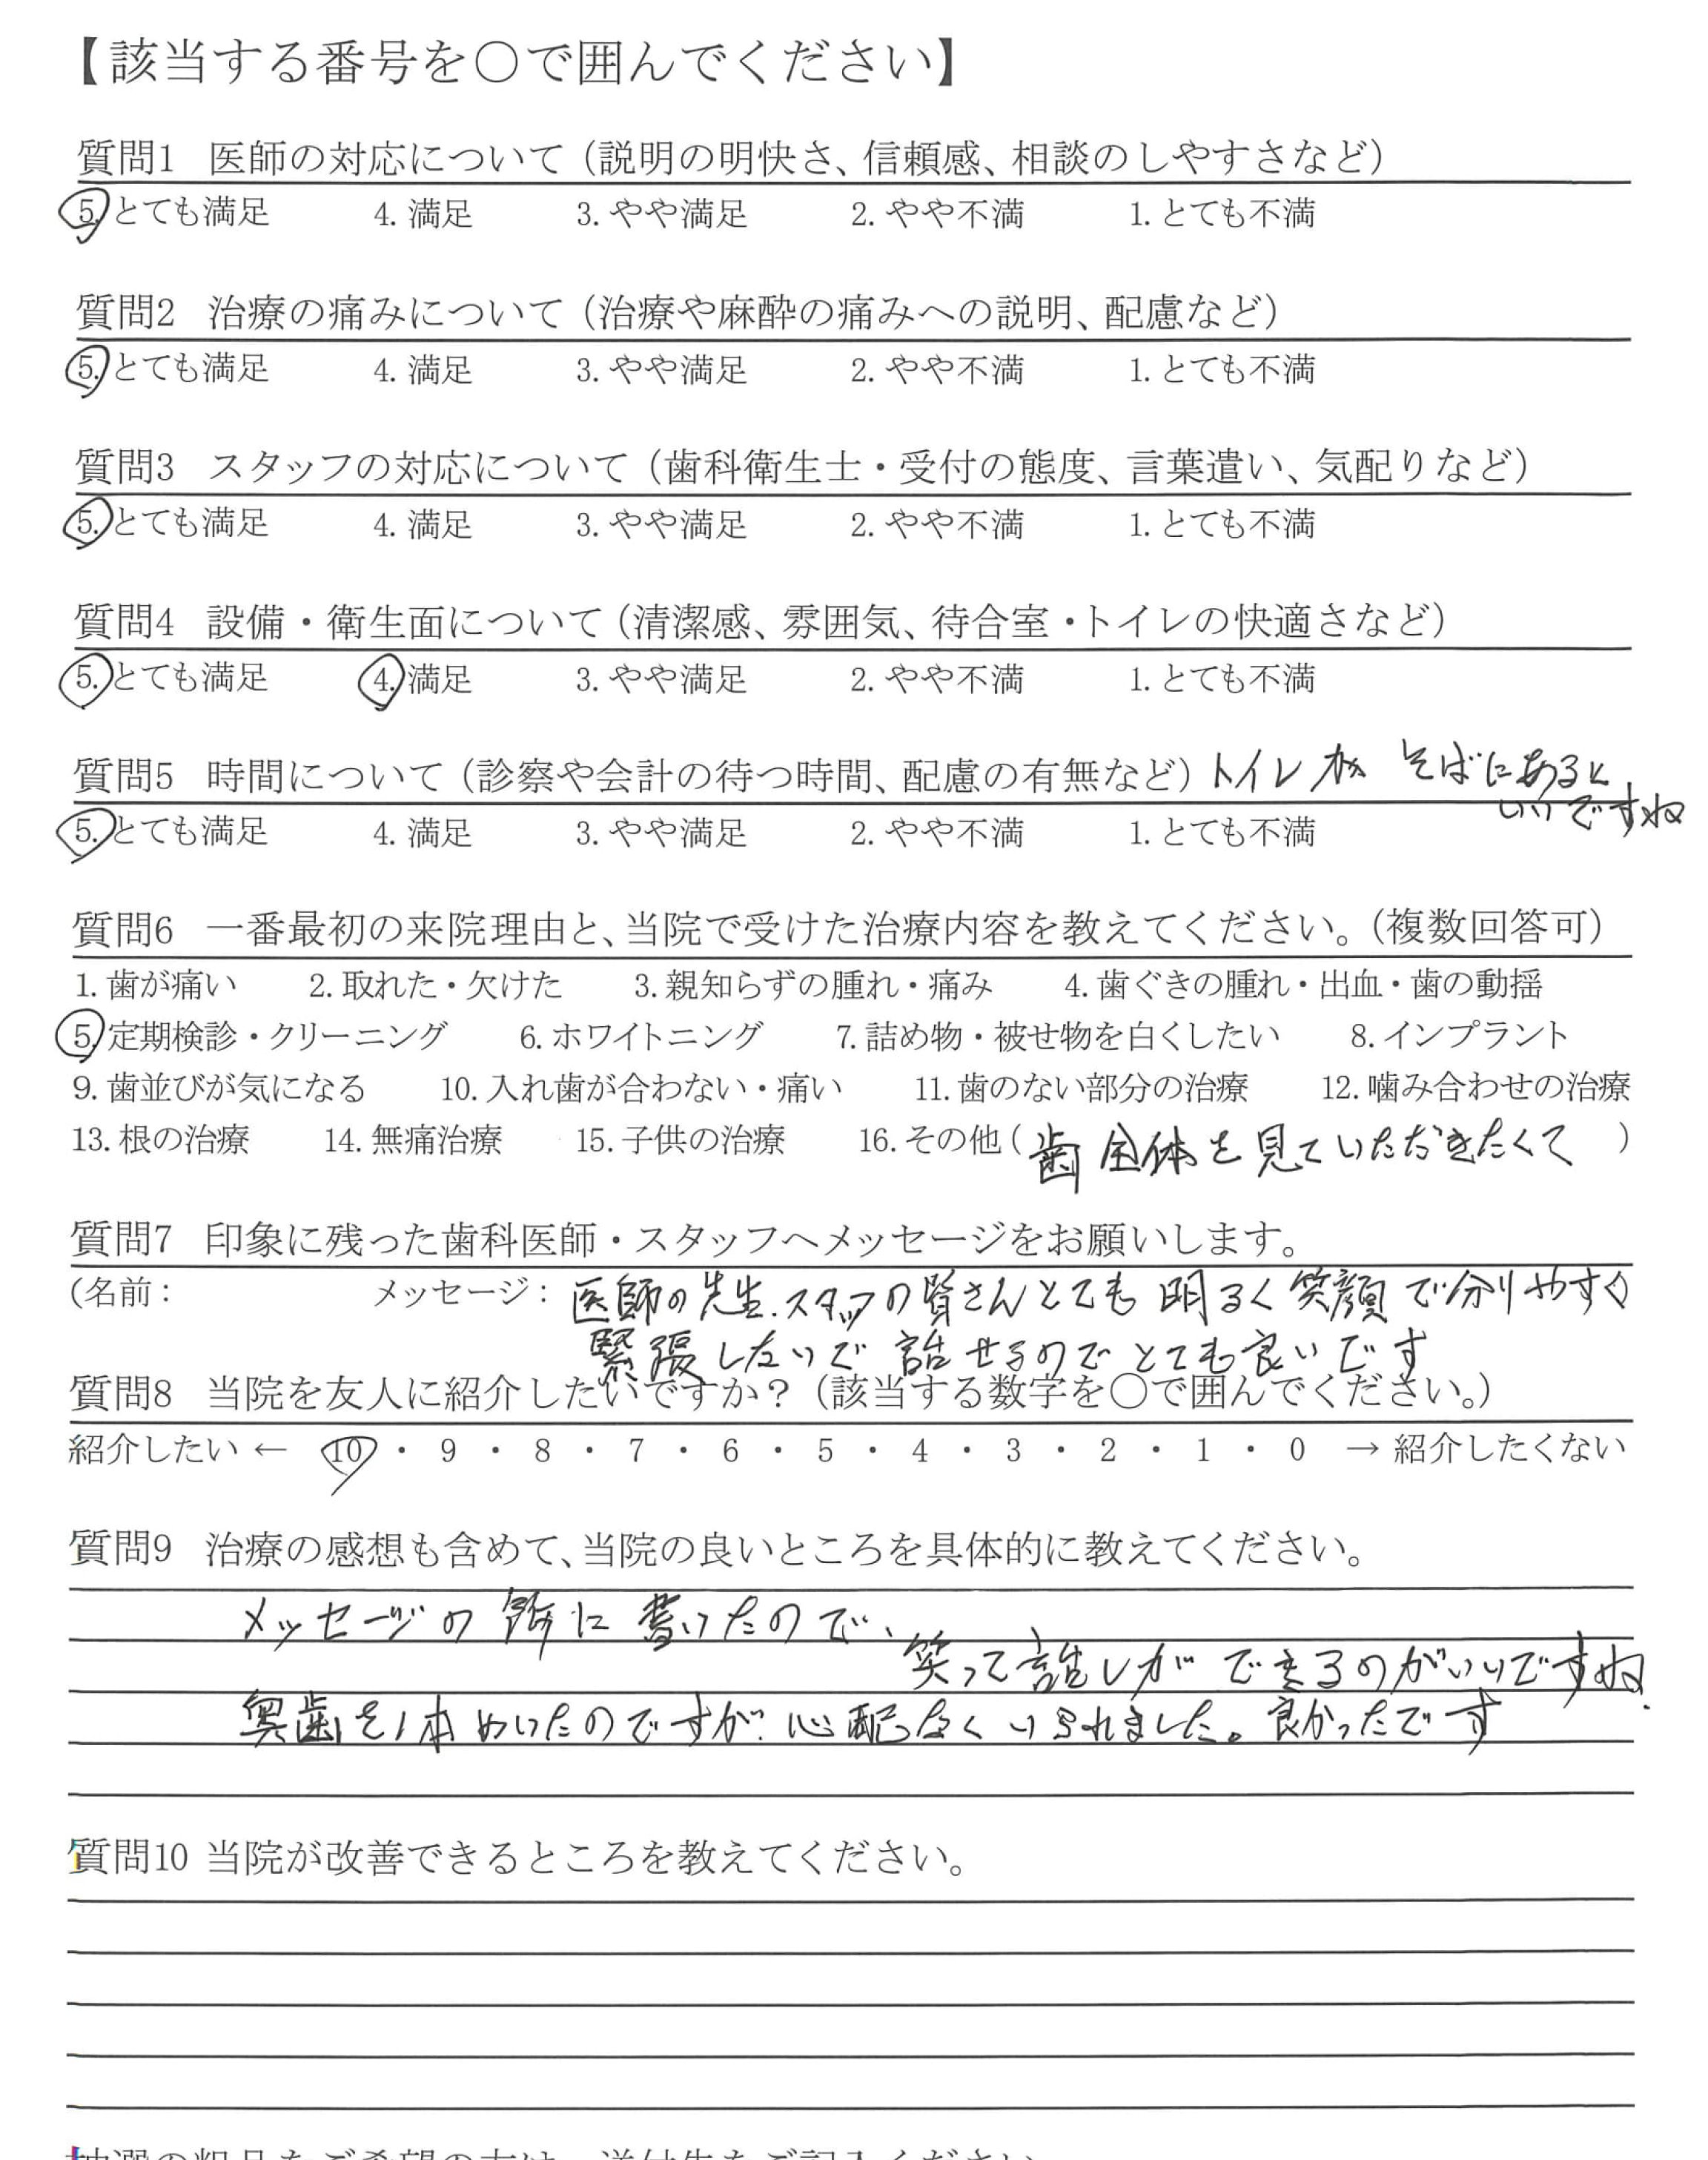 【該当する番号を〇で囲んでください】
質問1 医師の対応について（説明の明快さ、信頼感、相談のしやすさなど）
5. とても満足 4. 満足 3. やや満足 2. やや不満 1. とても不満
質問2 治療の痛みについて（治療や麻酔の痛みへの説明、配慮など）
5. とても満足 4. 満足 3. やや満足 2. やや不満 1. とても不満
質問3 スタッフの対応について（歯科衛生士・受付の態度、言葉遣い、気配りなど）
5. とても満足 4. 満足 3. やや満足 2. やや不満 1. とても不満
質問4 設備・衛生面について（清潔感、雰囲気、待合室・トイレの快適さなど）
5. とても満足 4. 満足 3. やや満足 2. やや不満 1. とても不満
質問5 時間について（診察や会計の待つ時間、配慮の有無など）トイレが そばにあると
いいですね
5. とても満足 4. 満足 3. やや満足 2. やや不満 1. とても不満
質問6 一番最初の来院理由と、当院で受けた治療内容を教えてください。（複数回答可）
1. 歯が痛い 2. 取れた・欠けた 3. 親知らずの腫れ・痛み 4. 歯ぐきの腫れ・出血・歯の動揺
5. 定期検診・クリーニング 6. ホワイトニング 7. 詰め物・被せ物を白くしたい 8. インプラント
9. 歯並びが気になる 10. 入れ歯が合わない・痛い 11. 歯のない部分の治療 12. 噛み合わせの治療
13. 根の治療 14. 無痛治療 15. 子供の治療 16. その他（歯全体を見ていただきたくて）
質問7 印象に残った歯科医師・スタッフへメッセージをお願いします。
（名前： メッセージ：医師の先生.スタッフの賢さんとても 明るく笑顔で分りやすく
緊張しないで 話せるのでとても良いです
質問8 当院を友人に紹介したいですか？（該当する数字を〇で囲んでください。）
紹介したい ← 10 ・ 9 ・ 8 ・ 7 ・ 6 ・ 5 ・ 4 ・ 3 ・ 2 ・ 1 ・ 0 → 紹介したくない
質問9 治療の感想も含めて、当院の良いところを具体的に教えてください。
メッセージの所に書いたので、
笑って話しができるのがいいですね.
奥歯を1本ぬいたのですが.心配なくいられました。良かったです
質問10 当院が改善できるところを教えてください。